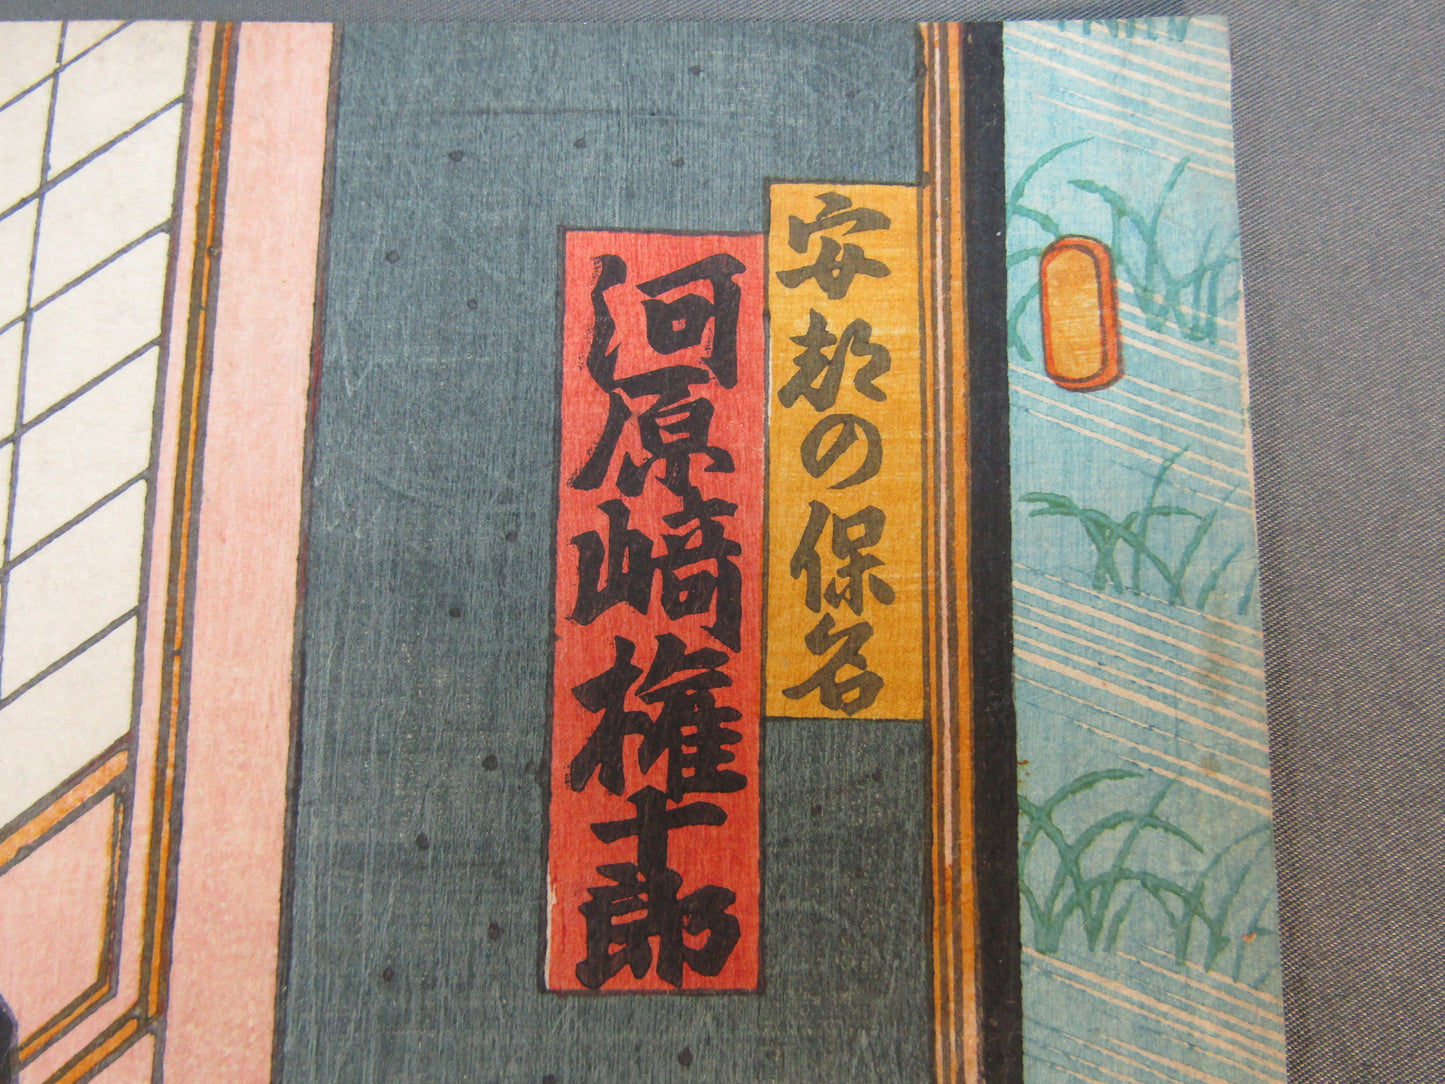 安部の保名
河原崎権十郎